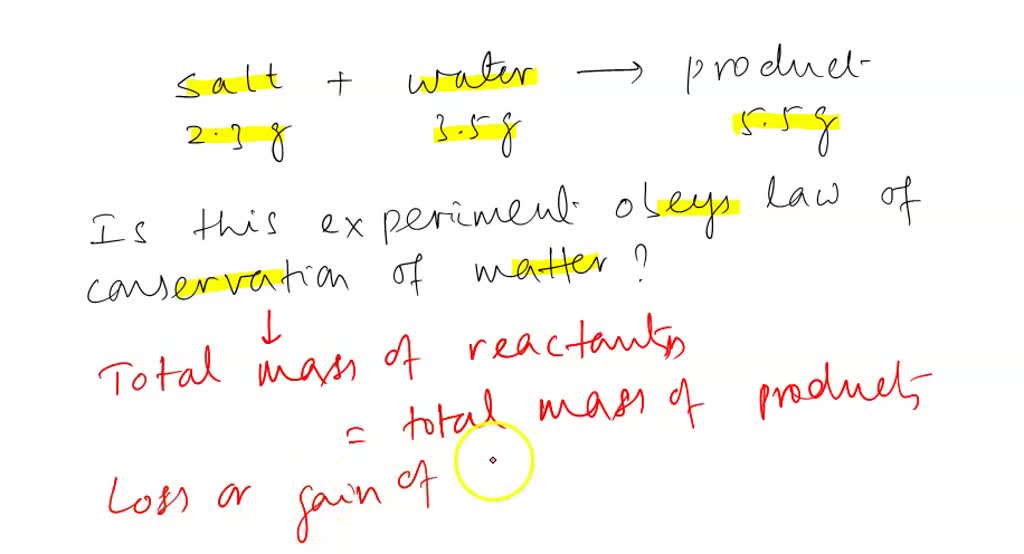 salt + water → product
2.3 g 3.5 g 5.5 g
Is this experiment obeys law of
conservation of matter?
↓
Total mass of reactants
= total mass of products
Loss or gain of